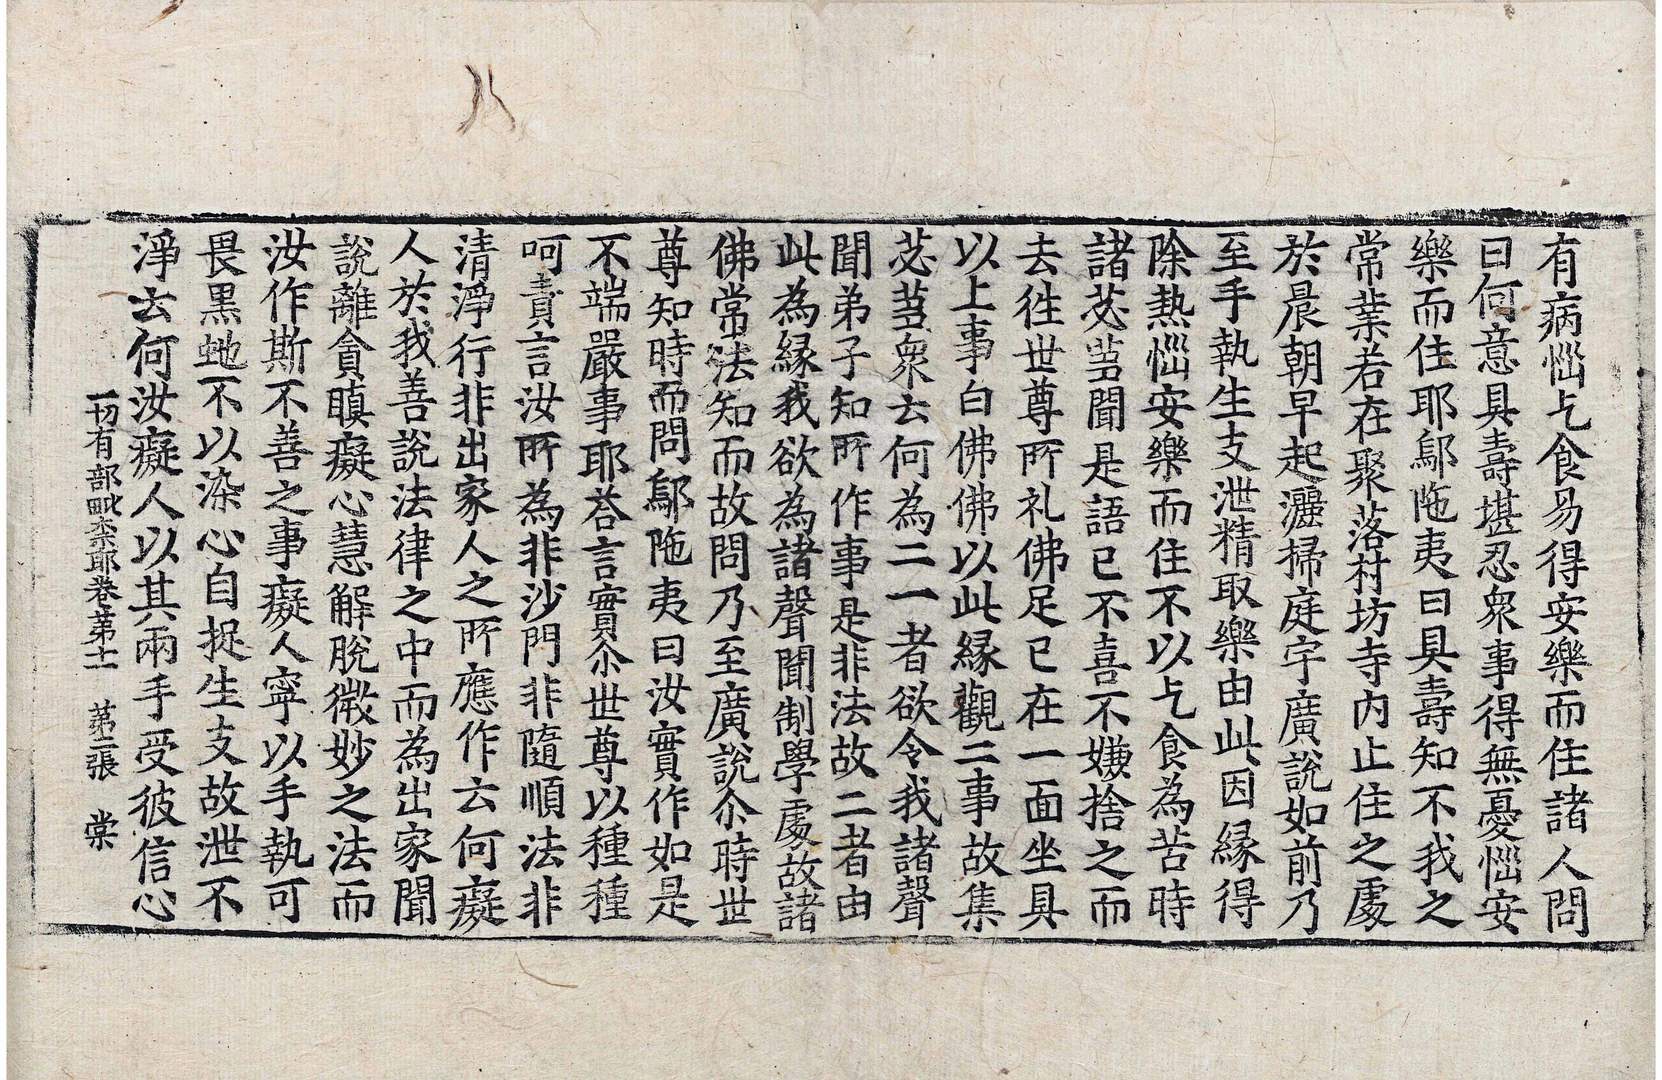 有病惱乞食易得安樂而住諸人問
曰何意具壽堪忍眾事得無憂惱安
樂而住耶鄔陁夷曰具壽知不我之
常業若在聚落村坊寺內止住之處
於晨朝早起灑掃庭宇廣說如前乃
至手執生支泄精取樂由此因緣得
除熱惱安樂而住不以乞食為苦時
諸苾芻聞是語已不喜不嫌捨之而
去往世尊所礼佛足已在一面坐具
以上事白佛佛以此緣觀二事故集
苾芻眾云何為二一者欲令我諸聲
聞弟子知所作事是非法故二者由
此為緣我欲為諸聲聞制學處故諸
佛常法知而故問乃至廣說尒時世
尊知時而問鄔陁夷曰汝實作如是
不端嚴事耶荅言實尒世尊以種種
呵責言汝所為非沙門非隨順法非
清淨行非出家人之所應作云何癡
人於我善說法律之中而為出家聞
說離貪瞋癡心慧解脫微妙之法而
汝作斯不善之事癡人寧以手執可
畏黑虵不以染心自捉生支故泄不
淨云何汝癡人以其兩手受彼信心
一切有部毗柰耶卷第十一 第二張 棠